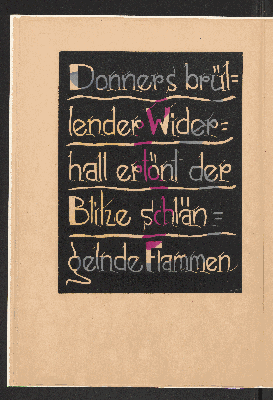 Donners brül=
lender Wider=
hall ertönt der
Blitze schlän=
gelnde Flammen